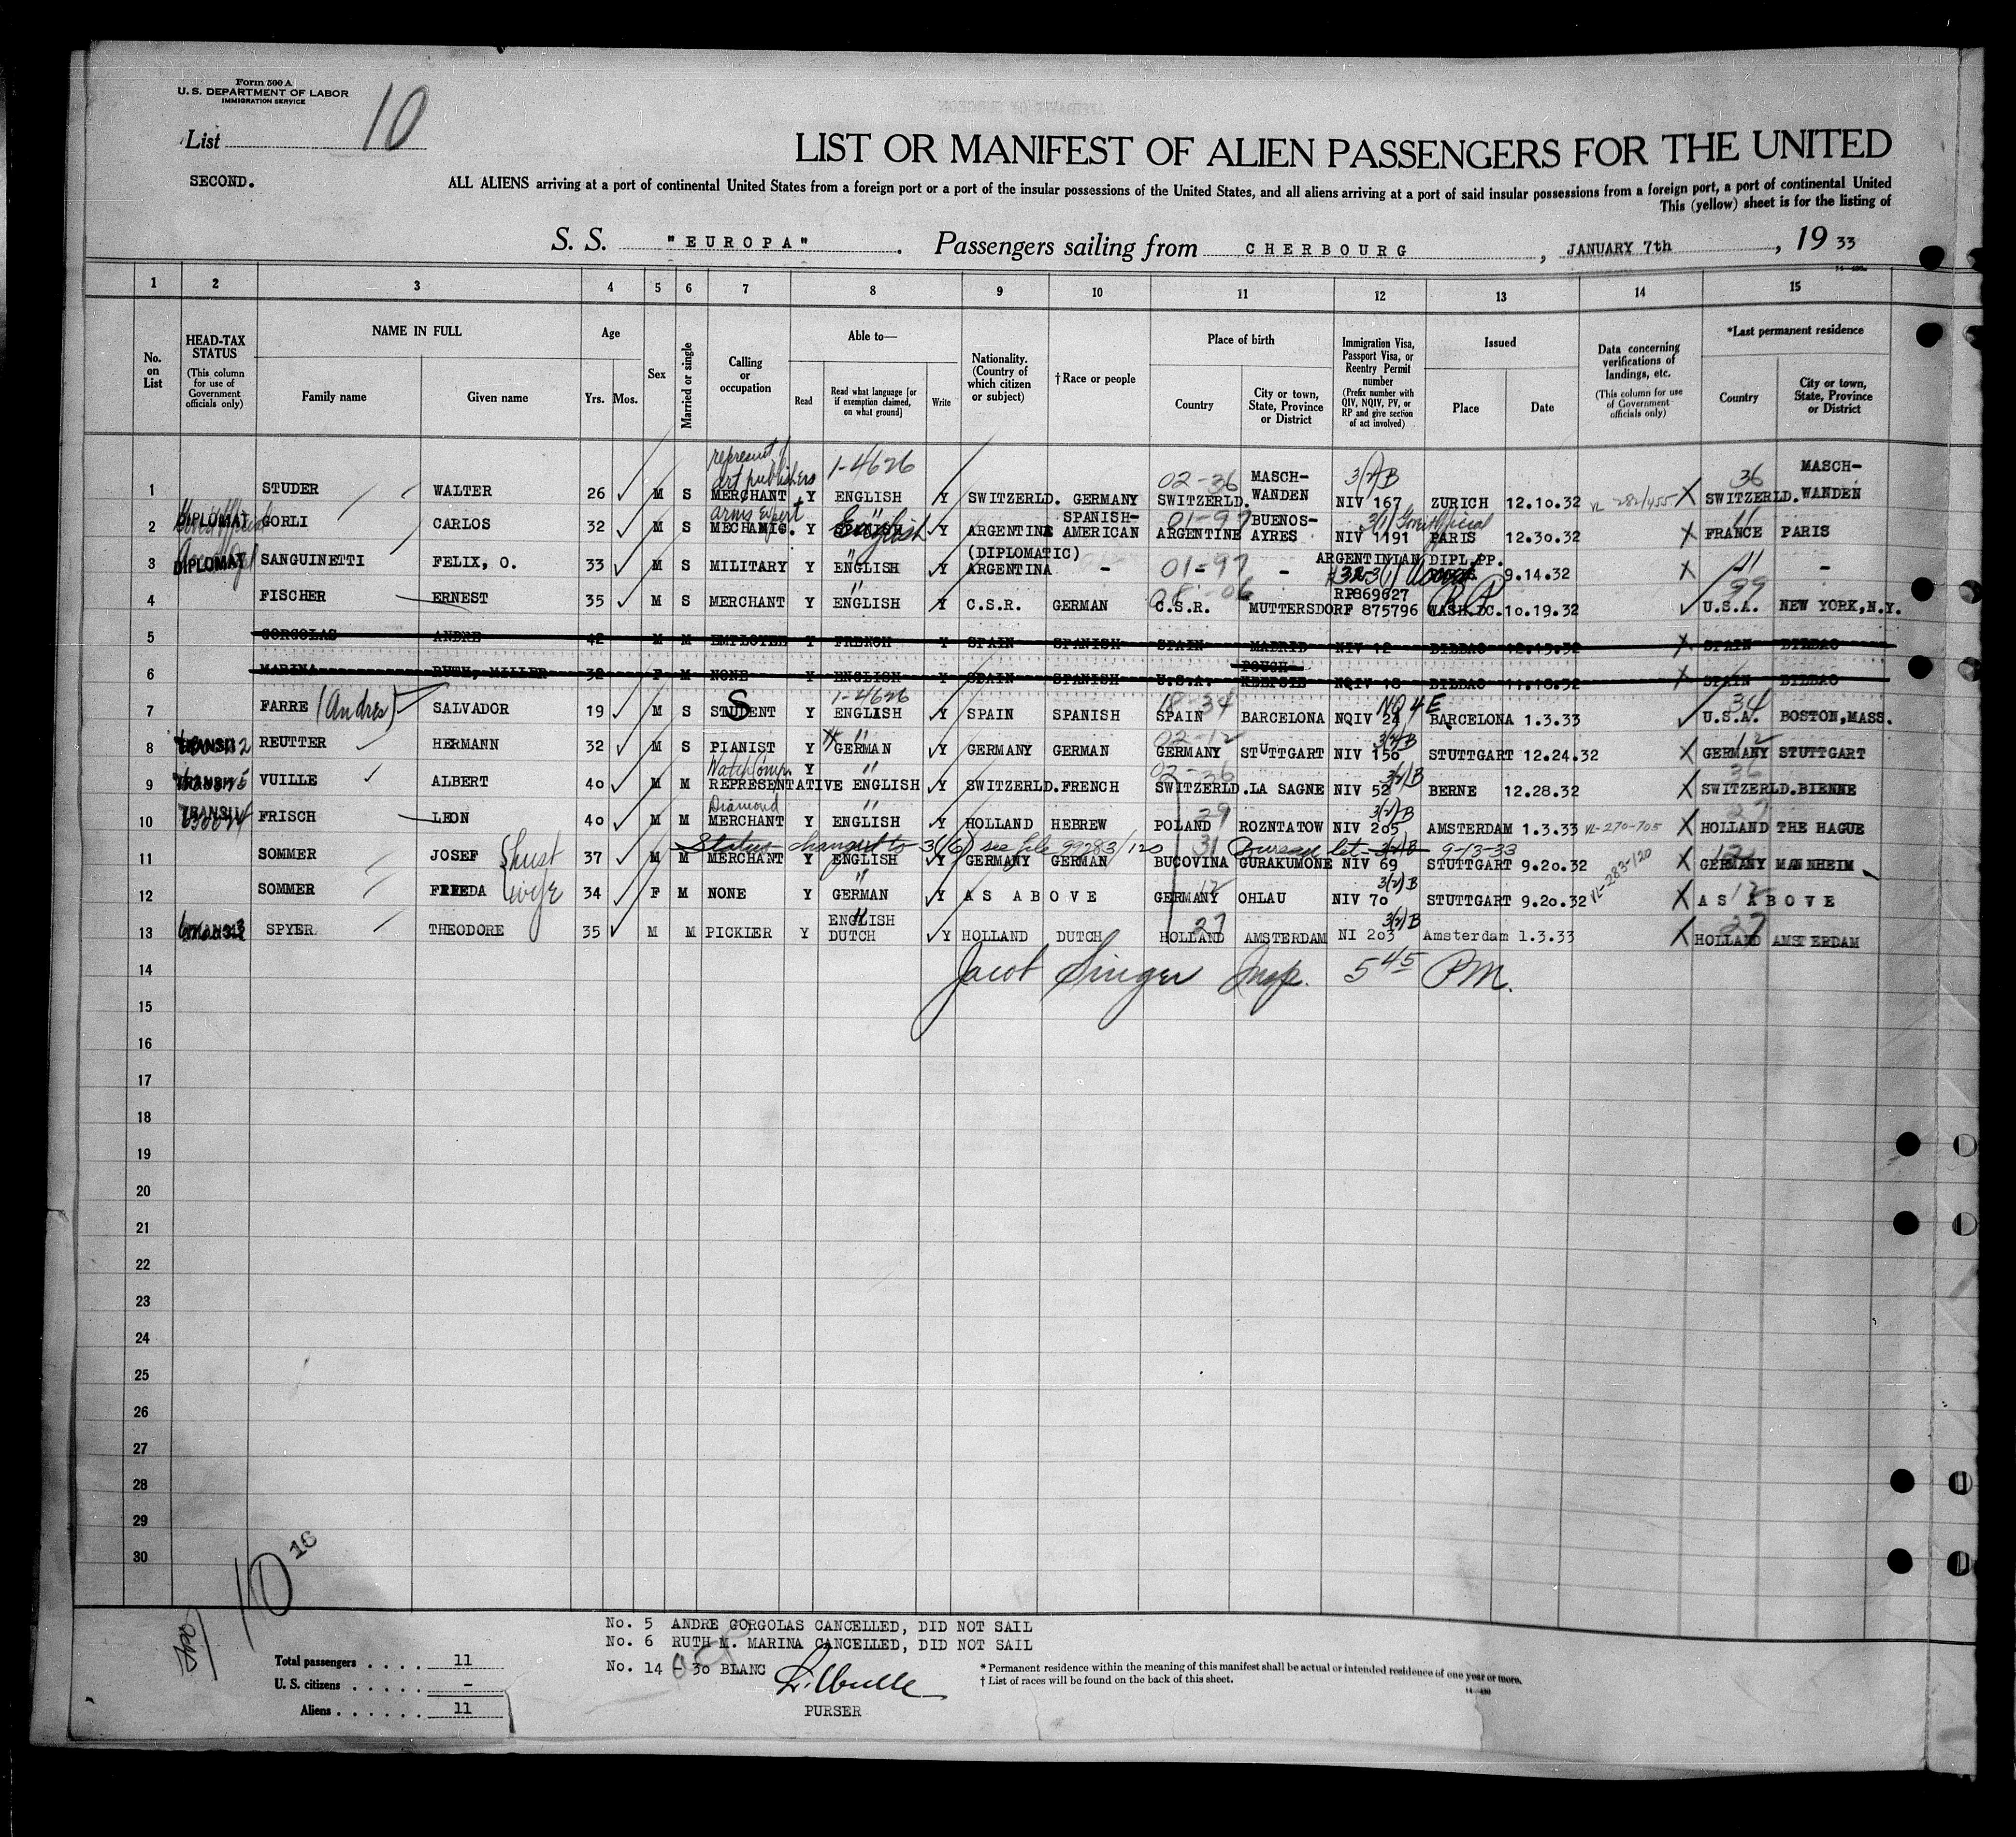 Form 500 A
U. S. DEPARTMENT OF LABOR
IMMIGRATION SERVICE
List 10
SECOND.
LIST OR MANIFEST OF ALIEN PASSENGERS FOR THE UNITED
ALL ALIENS arriving at a port of continental United States from a foreign port or a port of the insular possessions of the United States, and all aliens arriving at a port of said insular possessions from a foreign port, a port of continental United
This (yellow) sheet is for the listing of
S. S. "EUROPA" . Passengers sailing from CHERBOURG , JANUARY 7th , 19 33
1 2 3 4 5 6 7 8 9 10 11 12 13 14 15
No. on List
HEAD-TAX STATUS (This column for use of Government officials only)
NAME IN FULL
Family name Given name
Age
Yrs. Mos.
Sex
Married or single
Calling or occupation
Able to—
Read Read what language [or if exemption claimed, on what ground] Write
Nationality. (Country of which citizen or subject)
†Race or people
Place of birth
Country City or town, State, Province or District
Immigration Visa, Passport Visa, or Reentry Permit number (Prefix number with QIV, NQIV, PV, or RP and give section of act involved)
Issued
Place Date
Data concerning verifications of landings, etc. (This column for use of Government officials only)
*Last permanent residence
Country City or town, State, Province or District
represent of art publishers 1-4626 02-36 3(2)B 36
1 STUDER WALTER 26 M S MERCHANT Y ENGLISH Y SWITZERLD. GERMANY SWITZERLD. MASCH-WANDEN NIV 167 ZURICH 12.10.32 VL 282/455 X SWITZERLD. MASCH-WANDEN
arms Expert English 01-97 3(1) Govt Official
2 DIPLOMAT GORLI CARLOS 32 M S MECHANIC. Y SPANISH Y ARGENTINE SPANISH-AMERICAN ARGENTINE BUENOS-AYRES NIV 1191 PARIS 12.30.32 X FRANCE PARIS
3 DIPLOMAT SANGUINETTI FELIX, O. 33 M S MILITARY Y ENGLISH Y (DIPLOMATIC) ARGENTINA - 01-97 - ARGENTINIAN DIPL.PP. 9.14.32 X -
4 FISCHER ERNEST 35 M S MERCHANT Y ENGLISH Y C.S.R. GERMAN C.S.R. MUTTERSDORF RP869627 875796 WASH.DC. 10.19.32 99 U.S.A. NEW YORK,N.Y.
5 GORGOLAS ANDRE 42 M M EMPLOYEE Y FRENCH Y SPAIN SPANISH SPAIN MADRID NIV 12 BILBAO X SPAIN BILBAO
6 MARINA RUTH, MILLER 32 F M NONE Y ENGLISH Y SPAIN SPANISH U.S.A. POUGH-KEEPSIE NQIV 18 BILBAO 11.18.32 X SPAIN BILBAO
S 1-4626 18-34 NQ 4E 34
7 FARRE (Andres) SALVADOR 19 M S STUDENT Y ENGLISH Y SPAIN SPANISH SPAIN BARCELONA NQIV 24 BARCELONA 1.3.33 U.S.A. BOSTON,MASS.
02-12 3(2)B 12
8 TRANSIT REUTTER HERMANN 32 M S PIANIST Y GERMAN Y GERMANY GERMAN GERMANY STUTTGART NIV 156 STUTTGART 12.24.32 X GERMANY STUTTGART
Watch Comp. 02-36 3(2)B 36
9 TRANSIT VUILLE ALBERT 40 M M REPRESENTATIVE Y ENGLISH Y SWITZERLD. FRENCH SWITZERLD. LA SAGNE NIV 52 BERNE 12.28.32 X SWITZERLD. BIENNE
Diamond 29 3(2)B 27
10 TRANSIT FRISCH LEON 40 M M MERCHANT Y ENGLISH Y HOLLAND HEBREW POLAND ROZNTATOW NIV 205 AMSTERDAM 1.3.33 VL-270-705 X HOLLAND THE HAGUE
Status changed to 3(6) see file 99283/120 31 Bureau let 3(2)B 9-13-33
11 SOMMER JOSEF husb 37 M M MERCHANT Y ENGLISH Y GERMANY GERMAN BUCOVINA GURAKUMONE NIV 69 STUTTGART 9.20.32 VL-283-120 X GERMANY MANNHEIM
12 3(2)B 12
12 SOMMER FRIEDA wife 34 F M NONE Y GERMAN Y AS ABOVE GERMANY OHLAU NIV 70 STUTTGART 9.20.32 X AS ABOVE
27 3(2)B 27
13 SPYER THEODORE 35 M M PICKIER Y ENGLISH DUTCH Y HOLLAND DUTCH HOLLAND AMSTERDAM NI 203 Amsterdam 1.3.33 X HOLLAND AMSTERDAM
14 Jacob Singer Insp. 5 45 P.M.
15
16
17
18
19
20
21
22
23
24
25
26
27
28
29
30
10 16
No. 5 ANDRE GORGOLAS CANCELLED, DID NOT SAIL
No. 6 RUTH M. MARINA CANCELLED, DID NOT SAIL
No. 14 - 30 BLANC
PURSER
Total passengers . . . . 11
U. S. citizens . . . . . -
Aliens . . . . . . 11
* Permanent residence within the meaning of this manifest shall be actual or intended residence of one year or more.
† List of races will be found on the back of this sheet.
14—480